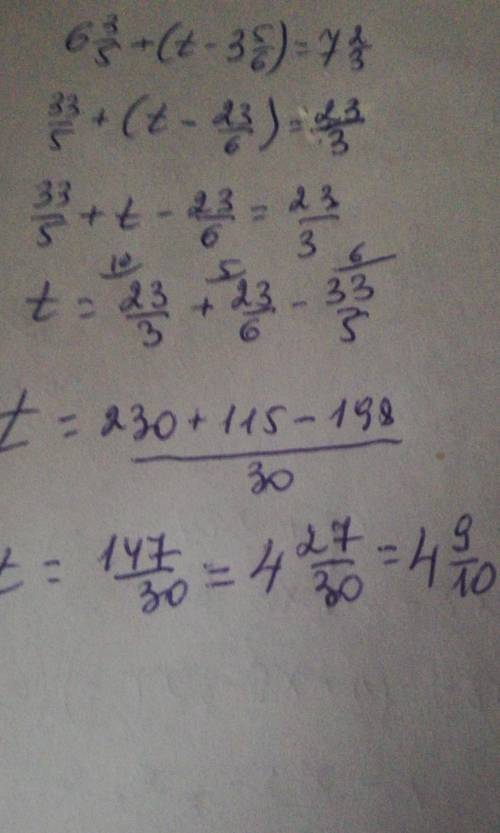 6 3/5 + (t - 3 5/6) = 7 2/3
33/5 + (t - 23/6) = 23/3
33/5 + t - 23/6 = 23/3
10 5 6
t = 23/3 + 23/6 - 33/5
t = (230 + 115 - 198)/30
t = 147/30 = 4 27/30 = 4 9/10